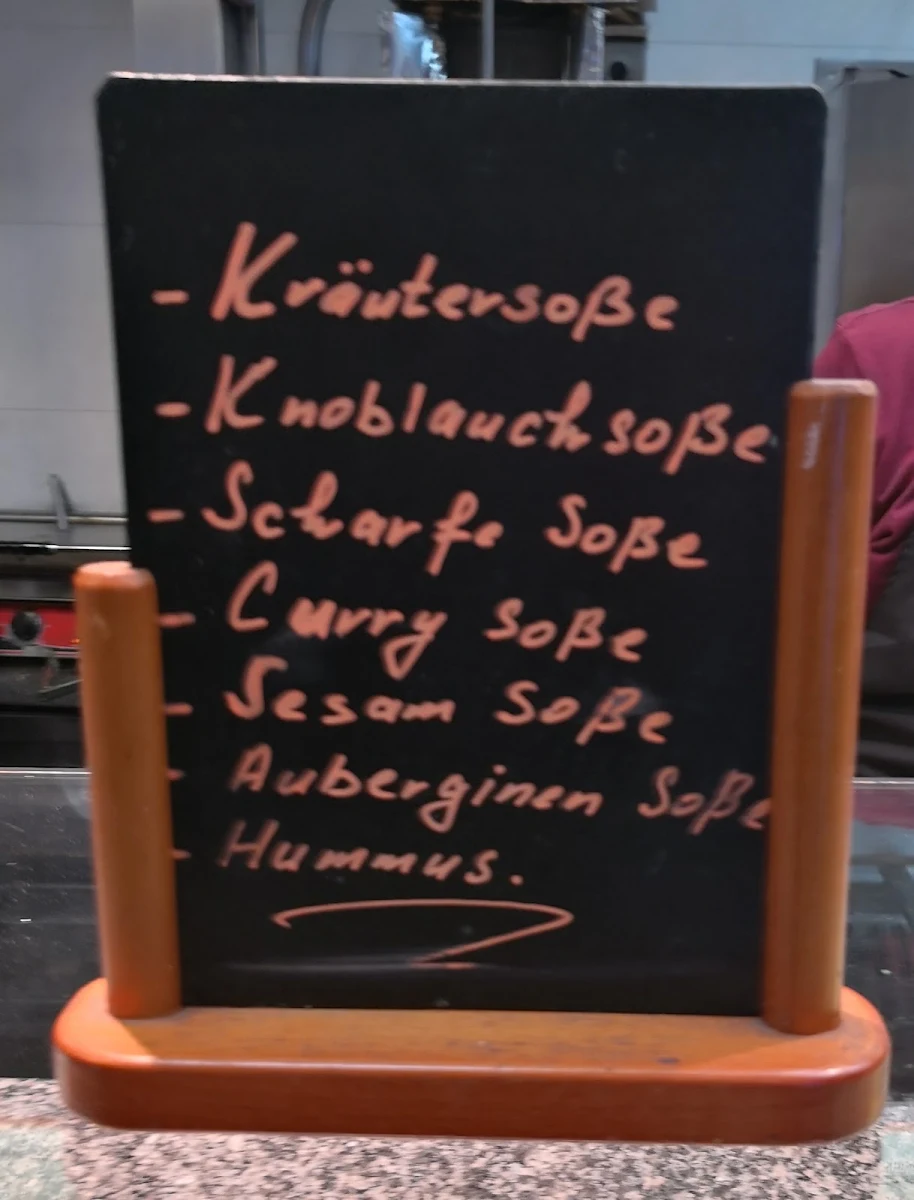 - Kräutersoße
- Knoblauchsoße
- Scharfe Soße
- Curry Soße
- Sesam Soße
- Auberginen Soße
- Hummus.